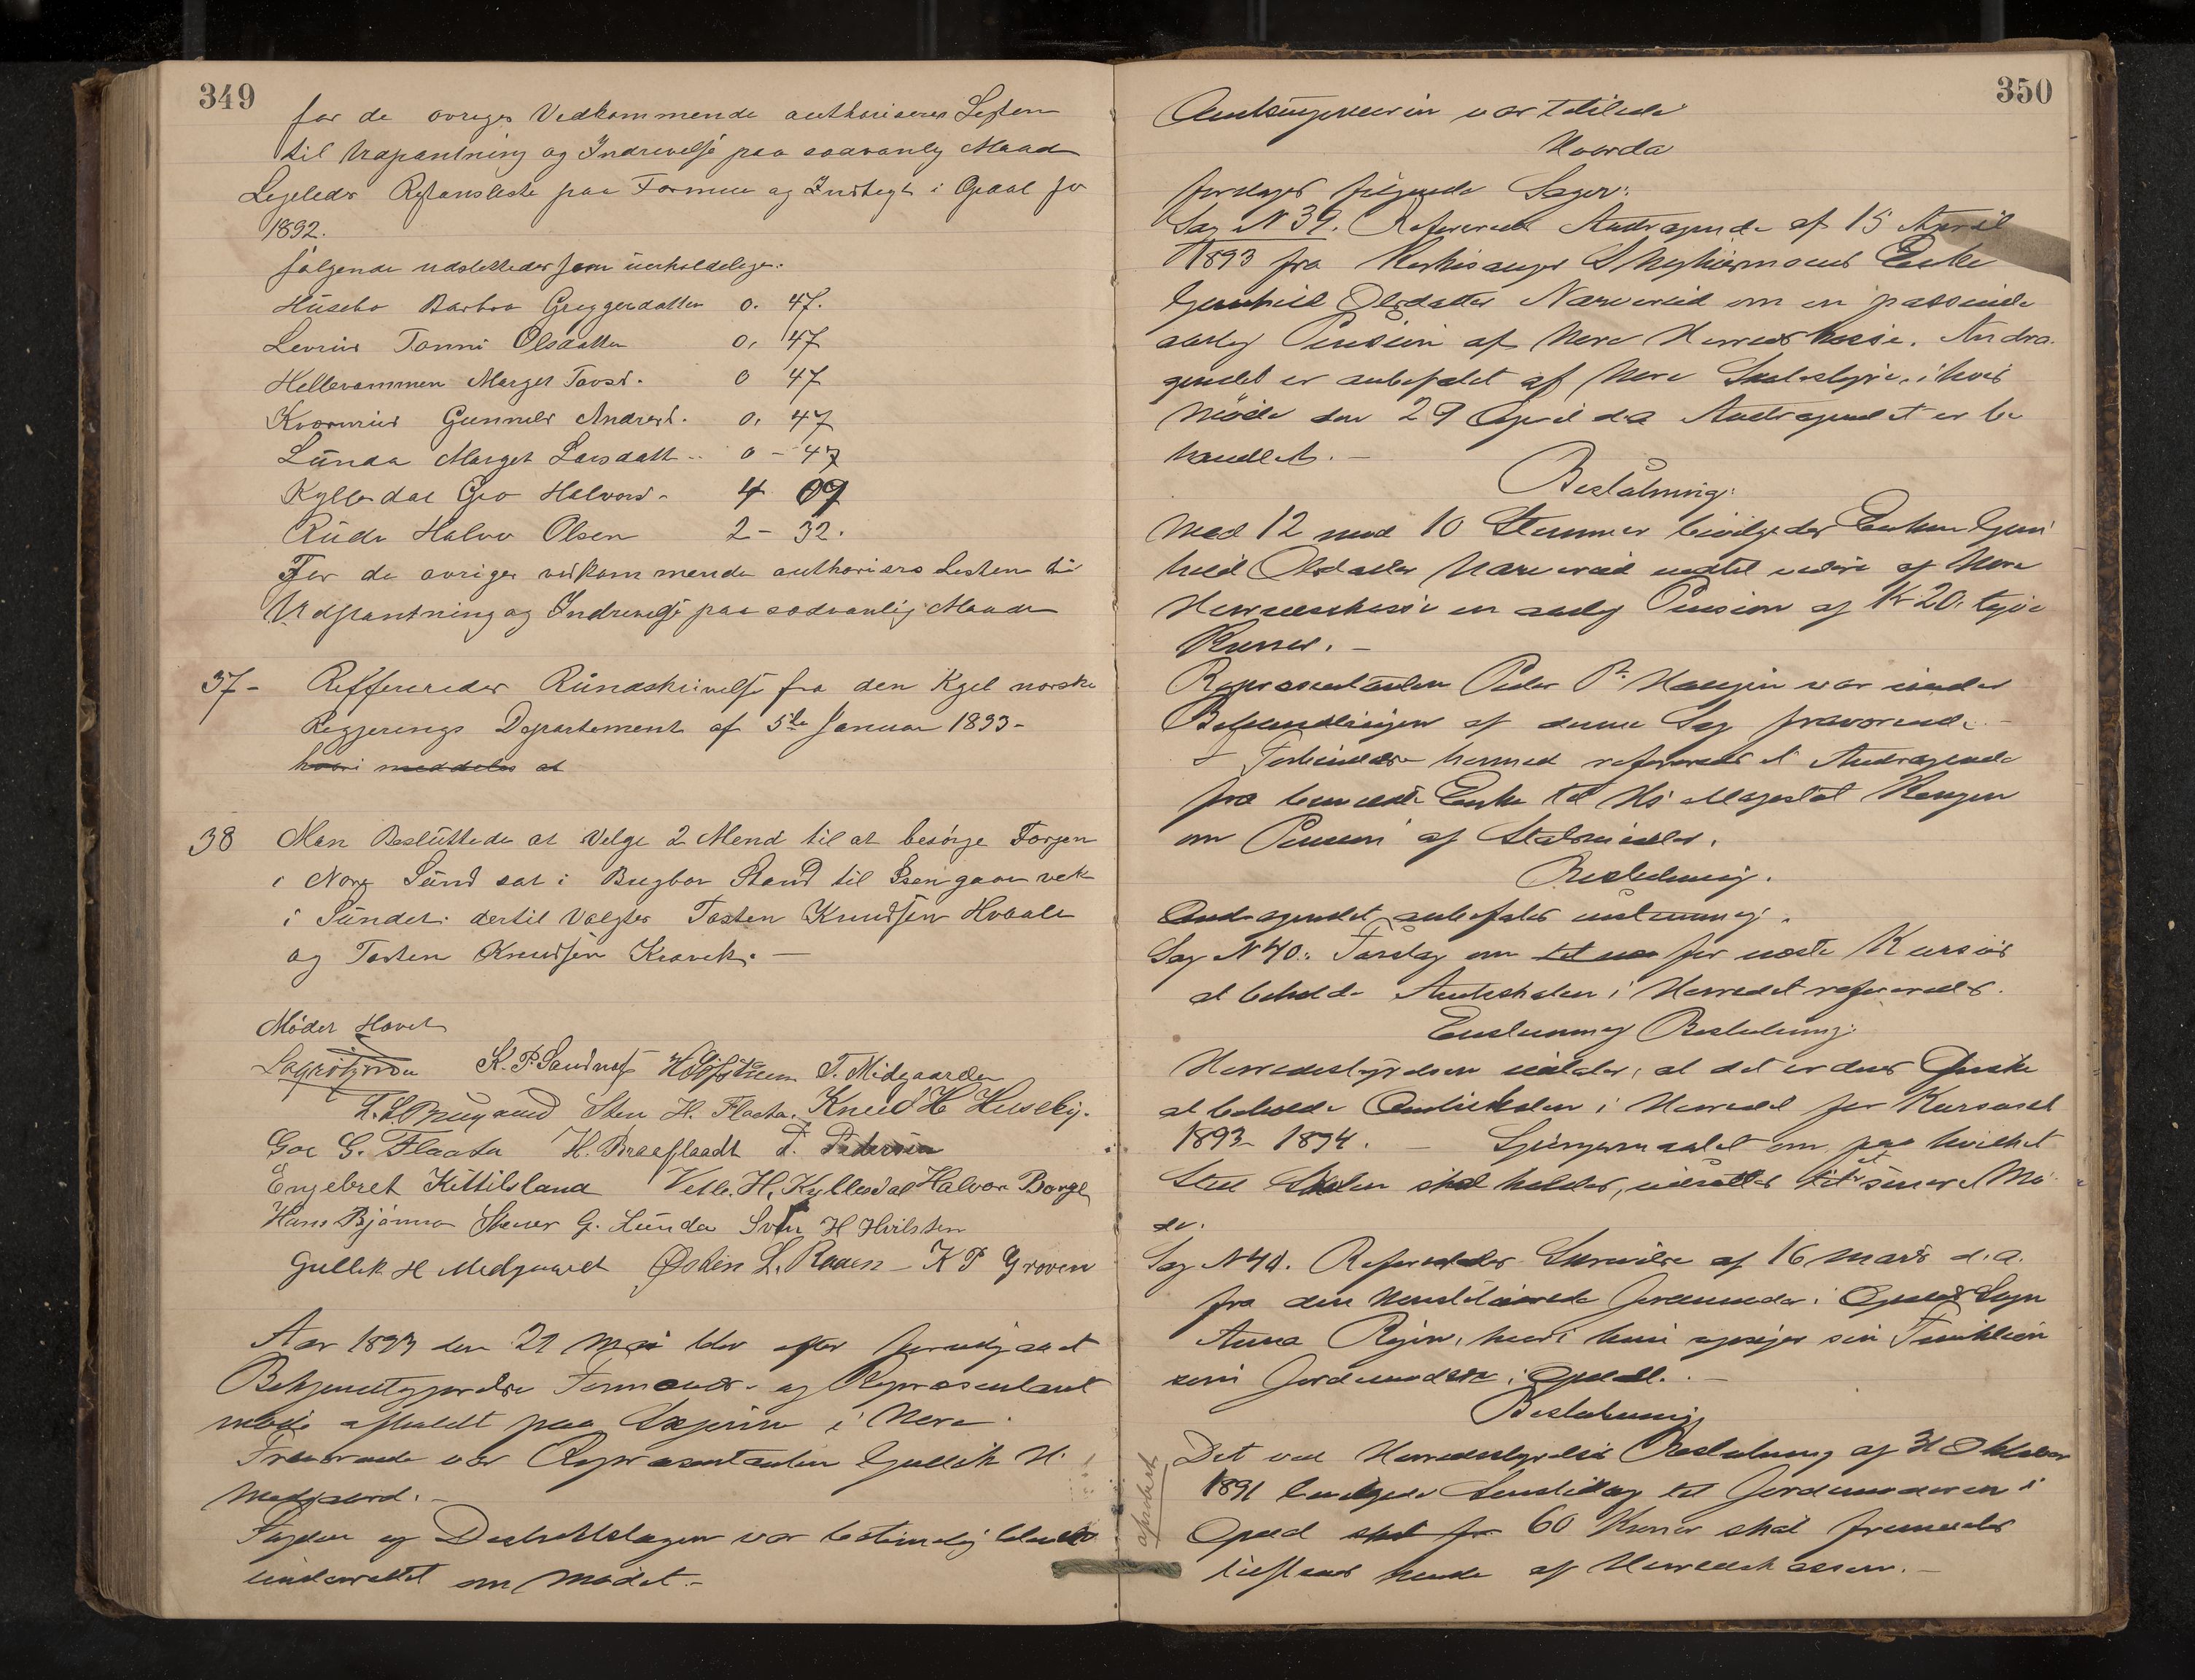 349
for de øvriges Vedkommende authoriseres Listen
til Udpantning og Indrivelse paa sædvanlig Maade
Ligeledes Restanseliste paa Formue og Indtægt i Opdal for
1892.
følgende udslettedes som uerholdelige:
Husebø Barbra Greggersdatter 0. 47.
Tonne Olsdatter 0, 47
Hellerammen Margit Tovsd. 0 47
Gunnild Andersd. 0, 47
Lunda Marget Larsdatt.. 0 - 47
Kylledal Gro Halvors. 4 09
Rude Halvor Olsen 2 - 32.
For de øvriges vedkommende authoriseres Listen til
Udpantning og Indrivelse paa sædvanlig Maade
37- Reffereredes Rundskrivelse fra den Kgel norske
Regjerings Departement af 5te Januar 1893-
hvori meddeles at
38 Man Besluttede at Velge 2 Mend til at besørge Fargen
i Nore Sund sat i Brugbar Stand til Isen gaar vek
i Sundet. dertil Valgtes Tosten Knudsen Hvaale
og Tosten Knudsen Kravik. —
Mødet Hævet
K. P. Sandnes T. Midgaarden
Sten H. Flaata. Knud H Huseby.
Goe G. Flaata H. Braaflaadt T. Pedersen
Engebret Kittilsland Vetle. H. Kylledal Halvor Borge
Hans Bjønnes Stener G. Lunda Sven H Hvilsten
Gullik H Medgaard Østen L. Raaen - K P Groven
Aar 1893 den 21 Mai blev efter forudgaaet
Bekjendtgjørelse Formands- og Repræsentant
møde afholdt paa Skjønne i Nore.
Fraværende var Repræsentanten Gullik H.
Medgaard. -
Fogden og Distriktslægen var
underrettet om Mødet. -
350
Amtsingeniøren var tilstede
Hvorda
foretages følgende Sager:
Sag N 39. Refereredes Andragende af 15 April
1893 fra Kirkesanger Enke
Gunhild Olsdatter Nærverud om en passende
aarlig Pension af Nore Herredskasse. Andra-
gendet er anbefalet af Nore Skolestyre, i hvis
Møde den 29 April d.a Andragendet er be
handlet. -
Beslutning:
Med 12 mod 10 Stemmer bevilgedes Enken Gun
hild Olsdatter Nærverud indtil videre af Nore
Herredskasse en aarlig Pension af Kr 20. tyve
Kroner. -
Repræsentanten Peder P. Haugen var under
Behandlingen af denne Sag fraværende -
I Forbindelse hermed refereredes et Andragende
fra bemeldte Enke til Hs Majestæt Kongen
om Pension af Statsmidler.
Beslutning.
Andragendet anbefales enstemmig.
Sag N 40. Forslag om for næste Kursus
at beholde Amtsskolen i Herredet refereredes.
Enstemmig Beslutning:
Herredsstyrelsen udtaler, at det er dens Ønske
at beholde Amtsskolen i Herredet for Kursuset
1893- 1894. - Spørgsmaalet om paa hvilket
Sted Skolen skal holdes, udsættes til et senere Mø-
de.
Sag N 41. Refereredes Skrivelse af 16 Marts d.a.
fra den konstituerede Jordemoder i Opdal Sogn
Anna hvori hun opsiger sin Funktion
som Jordemoder i Opdal. -
Beslutning
Det ved Herredsstyrelsens Beslutning af 31 Oktober
1891 bevilgede Lønstillæg til Jordemoderen i
Opdal skal for 60 Kroner skal fremdeles
tilstaaes hende af Herredskassen. -
afskrevet